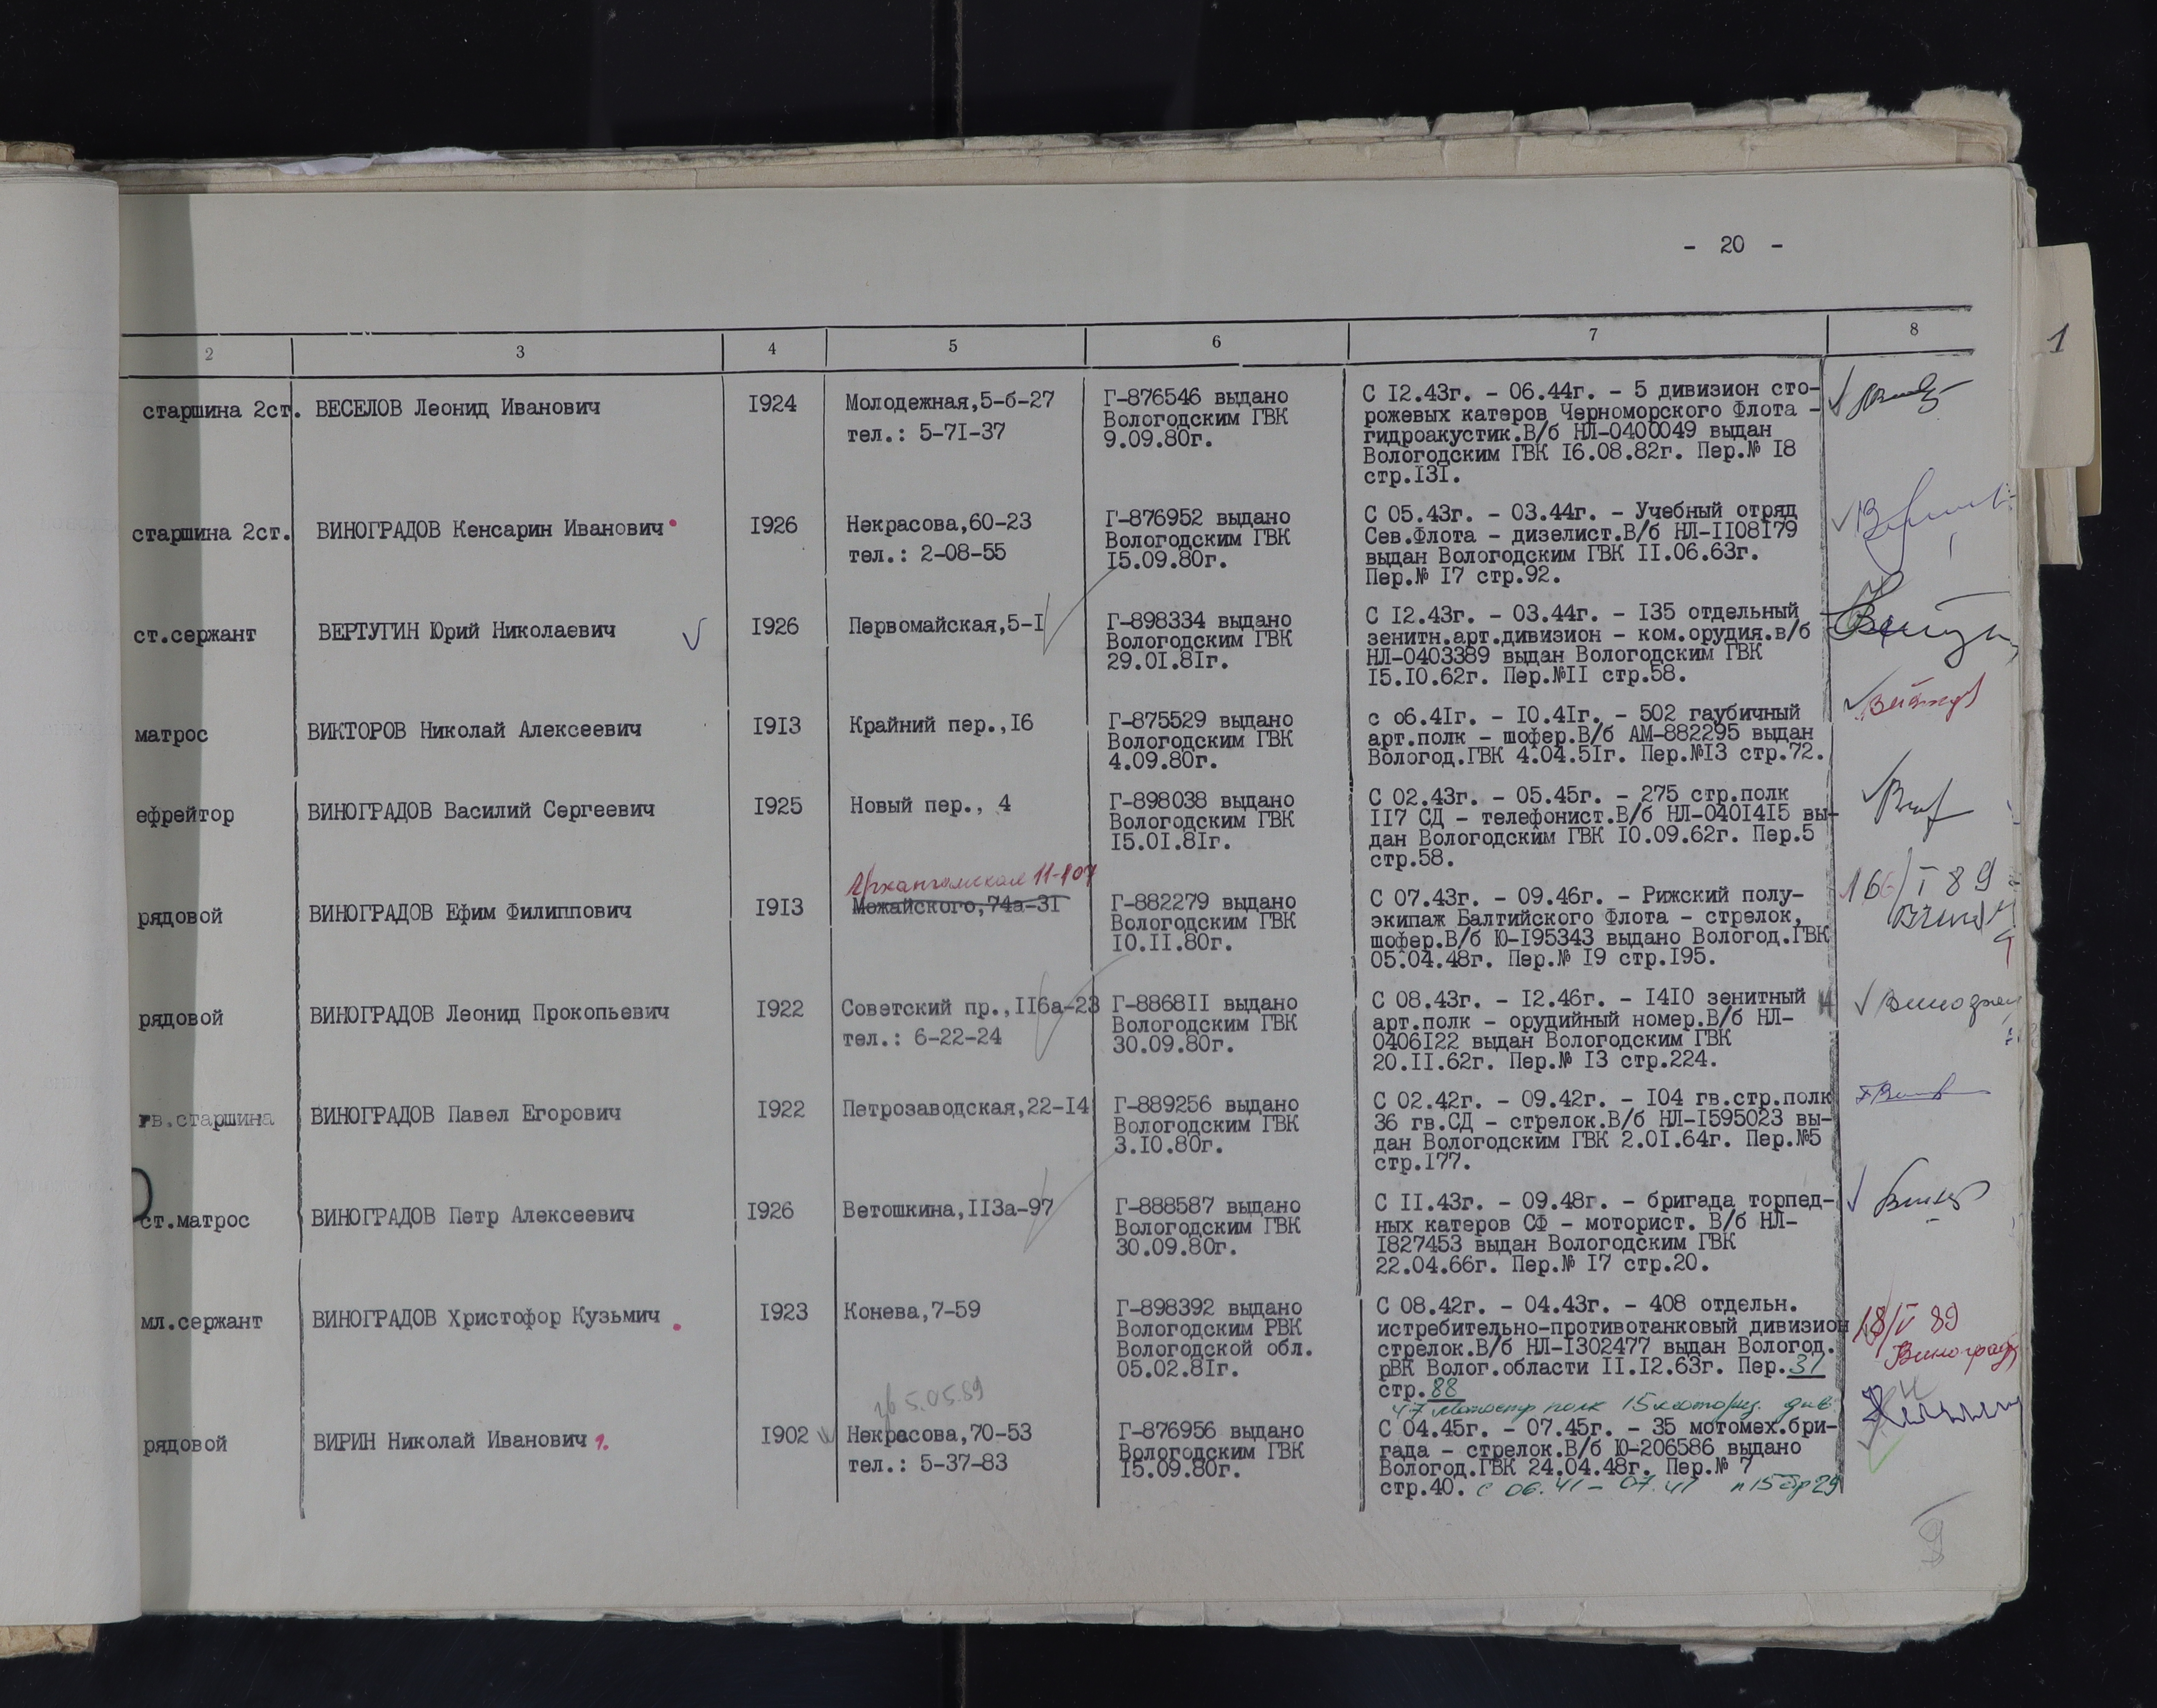 - 20 -
2 3 4 5 6 7 8
старшина 2ст. ВЕСЕЛОВ Леонид Иванович I924 Молодежная,5-б-27 Г-876546 выдано С I2.43г. - 06.44г. - 5 дивизион сто-
Вологодским ГВК рожевых катеров Черноморского Флота -
тел.: 5-7I-37 9.09.80г. гидроакустик.В/б НЛ-0400049 выдан
Вологодским ГВК I6.08.82г. Пер.№ I8
стр.I3I.
старшина 2ст. ВИНОГРАДОВ Кенсарин Иванович I926 Некрасова,60-23 Г-876952 выдано С 05.43г. - 03.44г. - Учебный отряд
Вологодским ГВК Сев.Флота - дизелист.В/б НЛ-II08I79
тел.: 2-08-55 I5.09.80г. выдан Вологодским ГВК II.06.63г.
Пер.№ I7 стр.92.
ст.сержант ВЕРТУГИН Юрий Николаевич I926 Первомайская,5-I Г-898334 выдано С I2.43г. - 03.44г. - I35 отдельный
Вологодским ГВК зенитн.арт.дивизион - ком.орудия.в/б
29.0I.8Iг. НЛ-0403389 выдан Вологодским ГВК
I5.I0.62г. Пер.№II стр.58.
матрос ВИКТОРОВ Николай Алексеевич I9I3 Крайний пер.,I6 Г-875529 выдано с о6.4Iг. - I0.4Iг. - 502 гаубичный
Вологодским ГВК арт.полк - шофер.В/б АМ-882295 выдан
4.09.80г. Вологод.ГВК 4.04.5Iг. Пер.№I3 стр.72.
ефрейтор ВИНОГРАДОВ Василий Сергеевич I925 Новый пер., 4 Г-898038 выдано С 02.43г. - 05.45г. - 275 стр.полк
Вологодским ГВК II7 СД - телефонист.В/б НЛ-040I4I5 вы-
I5.0I.8Iг. дан Вологодским ГВК I0.09.62г. Пер.5
стр.58.
Архангельская 11-107
рядовой ВИНОГРАДОВ Ефим Филиппович I9I3 Можайского,74а-3I Г-882279 выдано С 07.43г. - 09.46г. - Рижский полу- I 89
Вологодским ГВК экипаж Балтийского Флота - стрелок,
I0.II.80г. шофер.В/б Ю-I95343 выдано Вологод.ГВК
05.04.48г. Пер.№ I9 стр.I95.
рядовой ВИНОГРАДОВ Леонид Прокопьевич I922 Советский пр.,II6а-23 Г-8868II выдано С 08.43г. - I2.46г. - I4I0 зенитный
Вологодским ГВК арт.полк - орудийный номер.В/б НЛ-
тел.: 6-22-24 30.09.80г. 0406I22 выдан Вологодским ГВК
20.II.62г. Пер.№ I3 стр.224.
гв.старшина ВИНОГРАДОВ Павел Егорович I922 Петрозаводская,22-I4 Г-889256 выдано С 02.42г. - 09.42г. - I04 гв.стр.полк
Вологодским ГВК 36 гв.СД - стрелок.В/б НЛ-I595023 вы-
3.I0.80г. дан Вологодским ГВК 2.0I.64г. Пер.№5
стр.I77.
ст.матрос ВИНОГРАДОВ Петр Алексеевич I926 Ветошкина,II3а-97 Г-888587 выдано С II.43г. - 09.48г. - бригада торпед-
Вологодским ГВК ных катеров СФ - моторист. В/б НЛ-
30.09.80г. I827453 выдан Вологодским ГВК
22.04.66г. Пер.№ I7 стр.20.
мл.сержант ВИНОГРАДОВ Христофор Кузьмич I923 Конева,7-59 Г-898392 выдано С 08.42г. - 04.43г. - 408 отдельн.
Вологодским РВК истребительно-противотанковый дивизион 18/V 89
Вологодской обл. стрелок.В/б НЛ-I302477 выдан Вологод.
05.02.8Iг. рВК Волог.области II.I2.63г. Пер.31
стр.88
5.05.89 47 мотостр полк 15 моториз. див.
рядовой ВИРИН Николай Иванович I902 Некрасова,70-53 Г-876956 выдано С 04.45г. - 07.45г. - 35 мотомех.бри-
Вологодским ГВК гада - стрелок.В/б Ю-206586 выдано
тел.: 5-37-83 I5.09.80г. Вологод.ГВК 24.04.48г. Пер.№ 7
стр.40. с 06.41 - 07.41
1